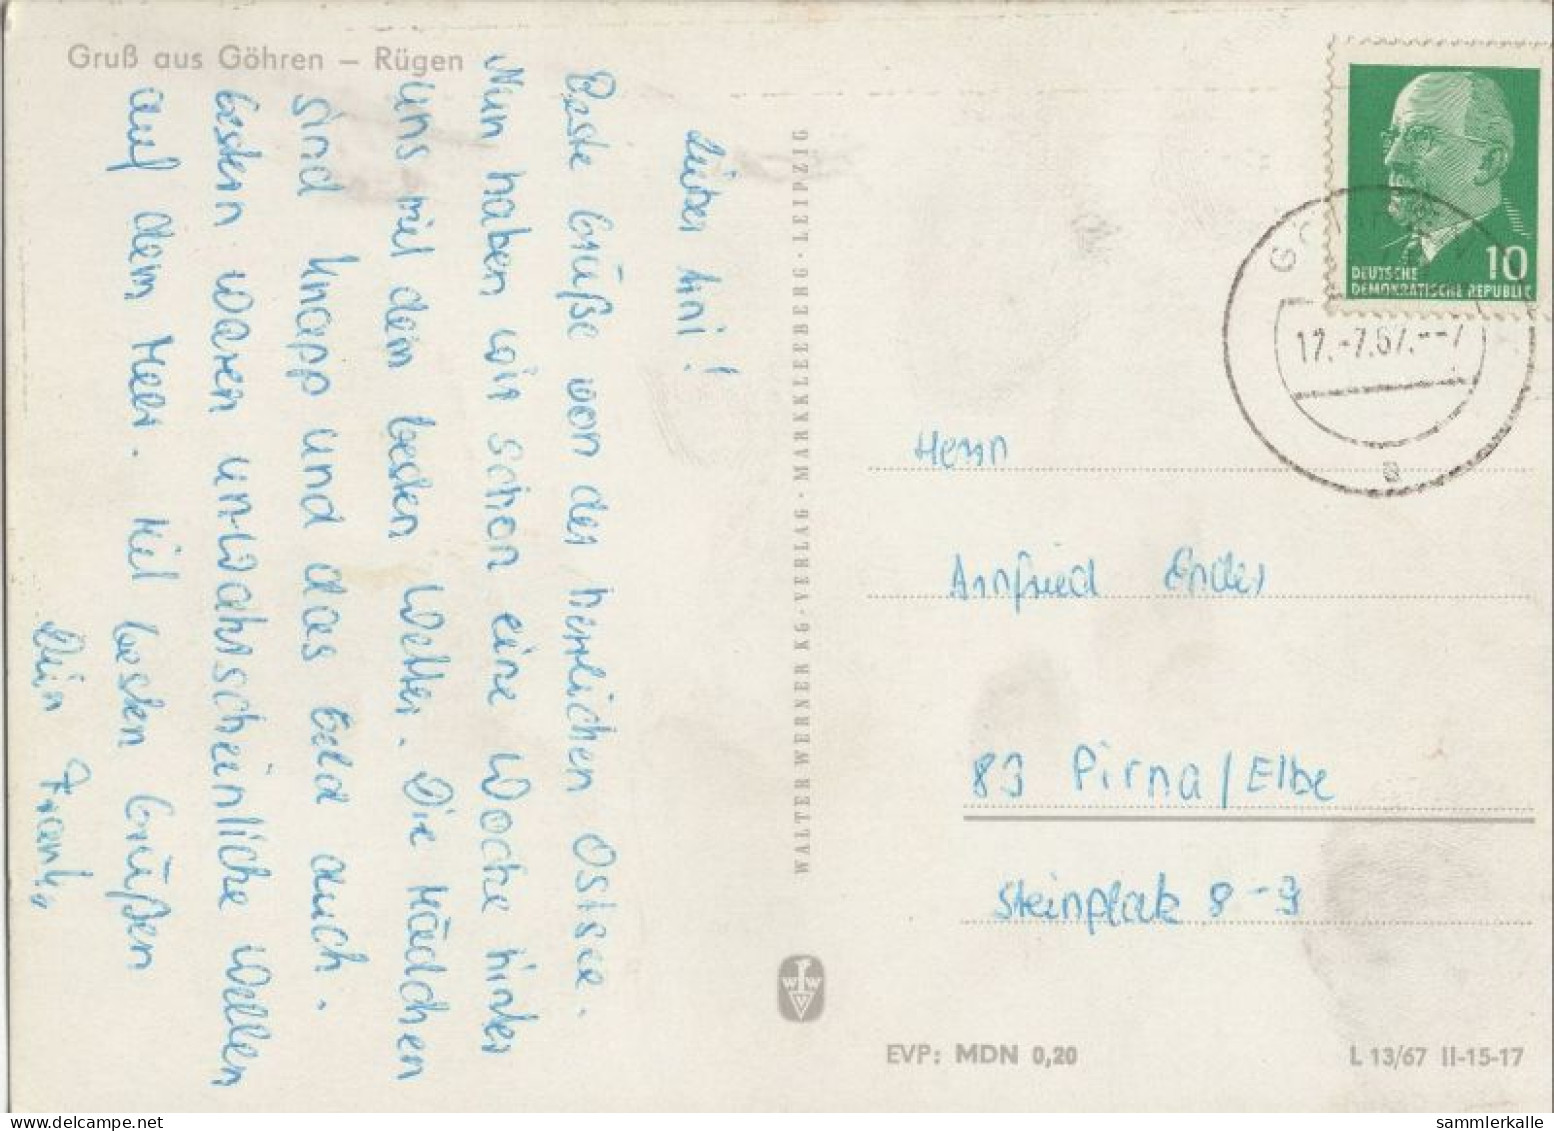 Gruß aus Göhren – Rügen
Lieber Arni!
Beste Grüße von der herrlichen Ostsee.
Nun haben wir schon eine Woche hinter
uns mit dem besten Wetter. Die Mädchen
sind knapp und das Geld auch.
Gestern waren un-wahrscheinliche Wellen
auf dem Meer. Viel besten Grüßen
Dein Frank
WALTER WERNER KG · VERLAG · MARKKLEEBERG · LEIPZIG
WWV
10
DEUTSCHE
DEMOKRATISCHE REPUBLIK
17.-7.67.--7
a
Herrn
Arnfried Ender
83 Pirna/Elbe
Steinplatz 8-9
EVP: MDN 0,20
L 13/67 II-15-17
sammlerkalle